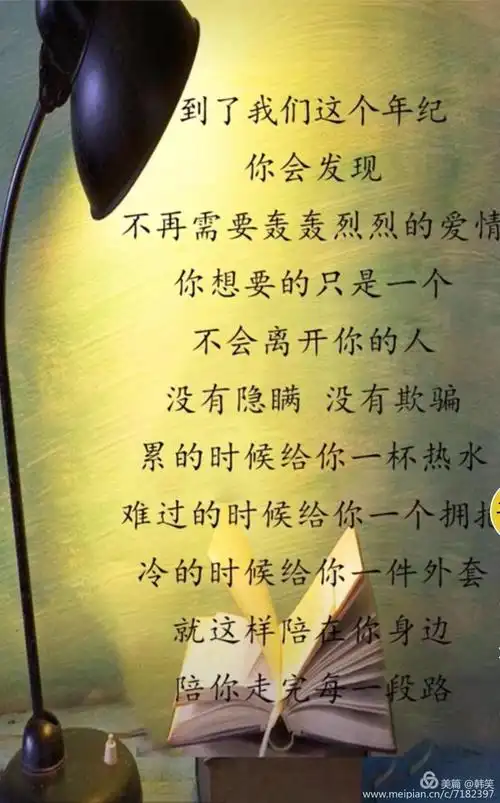 到了我们这个年纪
你会发现
不再需要轰轰烈烈的爱情
你想要的只是一个
不会离开你的人
没有隐瞒 没有欺骗
累的时候给你一杯热水
难过的时候给你一个拥
冷的时候给你一件外套
就这样陪在你身边
陪你走完每一段路
美篇 @韩笑
www.meipian.cn/c/7182397